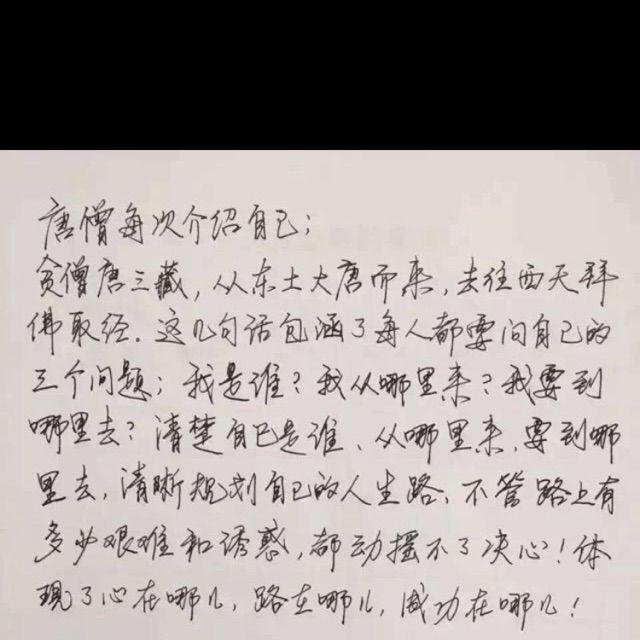 唐僧每次介绍自己；
贫僧唐三藏，从东土大唐而来，去往西天拜
佛取经．这几句话包涵了每人都要问自己的
三个问题；我是谁？我从哪里来？我要到
哪里去？清楚自已是谁、从哪里来、要到哪
里去，清晰规划自己的人生路、不管路上有
多少艰难和诱惑，都动摇不了决心！体
现了心在哪儿，路在哪儿，成功在哪儿！